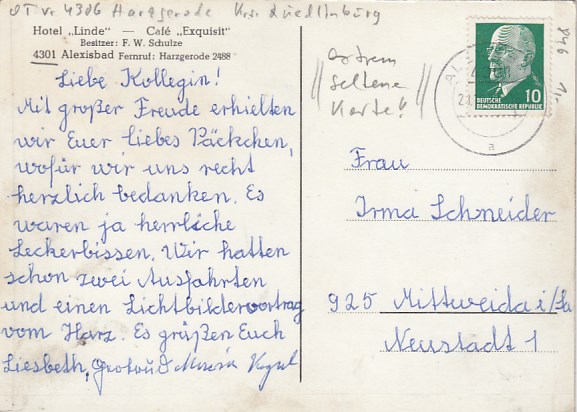 OT v. 4306 Harzgerode Krs. Quedlinburg
Hotel „Linde" — Café „Exquisit"
Besitzer: F. W. Schulze
4301 Alexisbad Fernruf: Harzgerode 2488
Liebe Kollegin!
Mit großer Freude erhielten
wir Euer liebes Päckchen,
wofür wir uns recht
herzlich bedanken. Es
waren ja herrliche
Leckerbissen. Wir hatten
schon zwei Ausfahrten
und einen Lichtbildervortrag
vom Harz. Es grüßen Euch
Liesbeth,
extrem
seltene
Karte!
DEUTSCHE
DEMOKRATISCHE REPUBLIK
10
a
Frau
Irma Schneider
925 Mittweida i/Sa
Neustadt 1